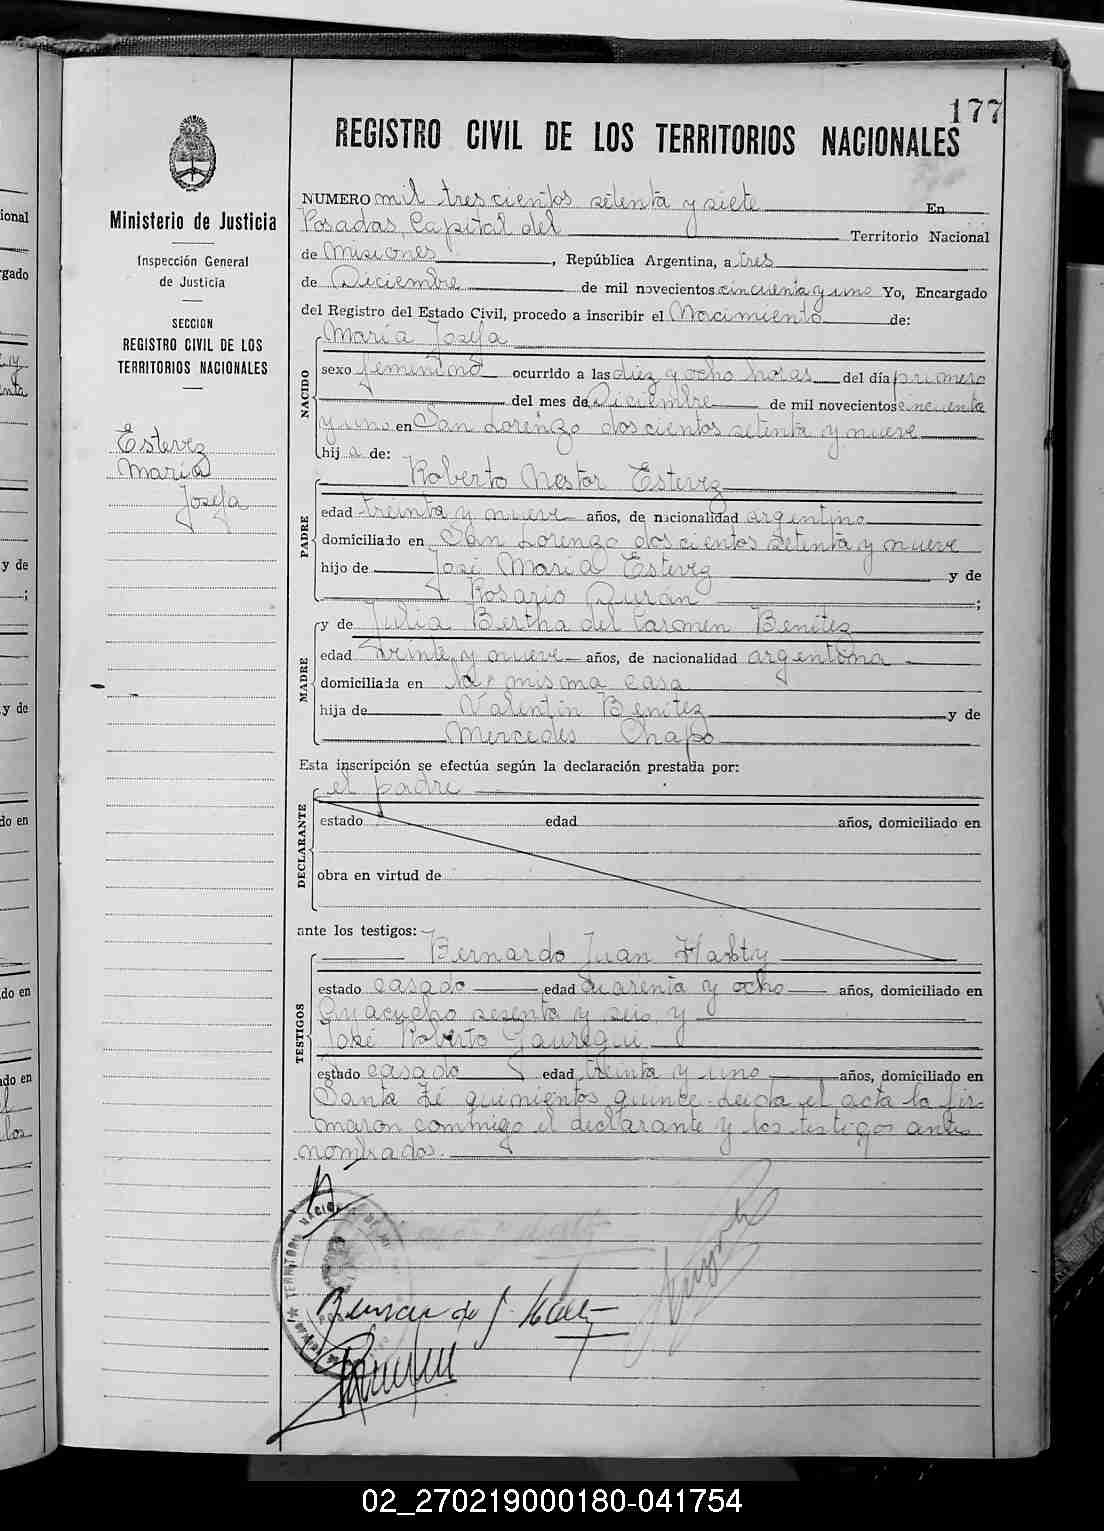 177
REGISTRO CIVIL DE LOS TERRITORIOS NACIONALES
Ministerio de Justicia
Inspección General
de Justicia
SECCION
REGISTRO CIVIL DE LOS
TERRITORIOS NACIONALES
Estevez
María
Josefa
NUMERO mil trescientos setenta y siete En
Posadas, Capital del Territorio Nacional
de Misiones, República Argentina, a tres
de Diciembre de mil novecientos cincuenta y uno Yo, Encargado
del Registro del Estado Civil, procedo a inscribir el Nacimiento de:
María Josefa
NACIDO
sexo femenino ocurrido a las diez y ocho horas del día primero
del mes de Diciembre de mil novecientos cincuenta
y uno en San Lorenzo doscientos setenta y nueve
hij a de:
Roberto Nestor Estevez
PADRE
edad treinta y nueve años, de nacionalidad argentino
domiciliado en San Lorenzo doscientos setenta y nueve
hijo de José María Estevez y de
Rosario Durán ;
y de Julia Bertha del Carmen Benitez
MADRE
edad veinte y nueve años, de nacionalidad argentina
domiciliada en la misma casa
hija de Valentín Benitez y de
Mercedes Chapo
Esta inscripción se efectúa según la declaración prestada por:
el padre
DECLARANTE
estado edad años, domiciliado en
obra en virtud de
ante los testigos:
Bernardo Juan
TESTIGOS
estado casado edad cuarenta y ocho años, domiciliado en
Ayacucho sesenta y seis, y
José Roberto Jauregui
estado casado edad treinta y uno años, domiciliado en
Santa Fé quinientos quince. Leida el acta la fir-
maron conmigo el declarante y los testigos ante
nombrados.
02_270219000180-041754